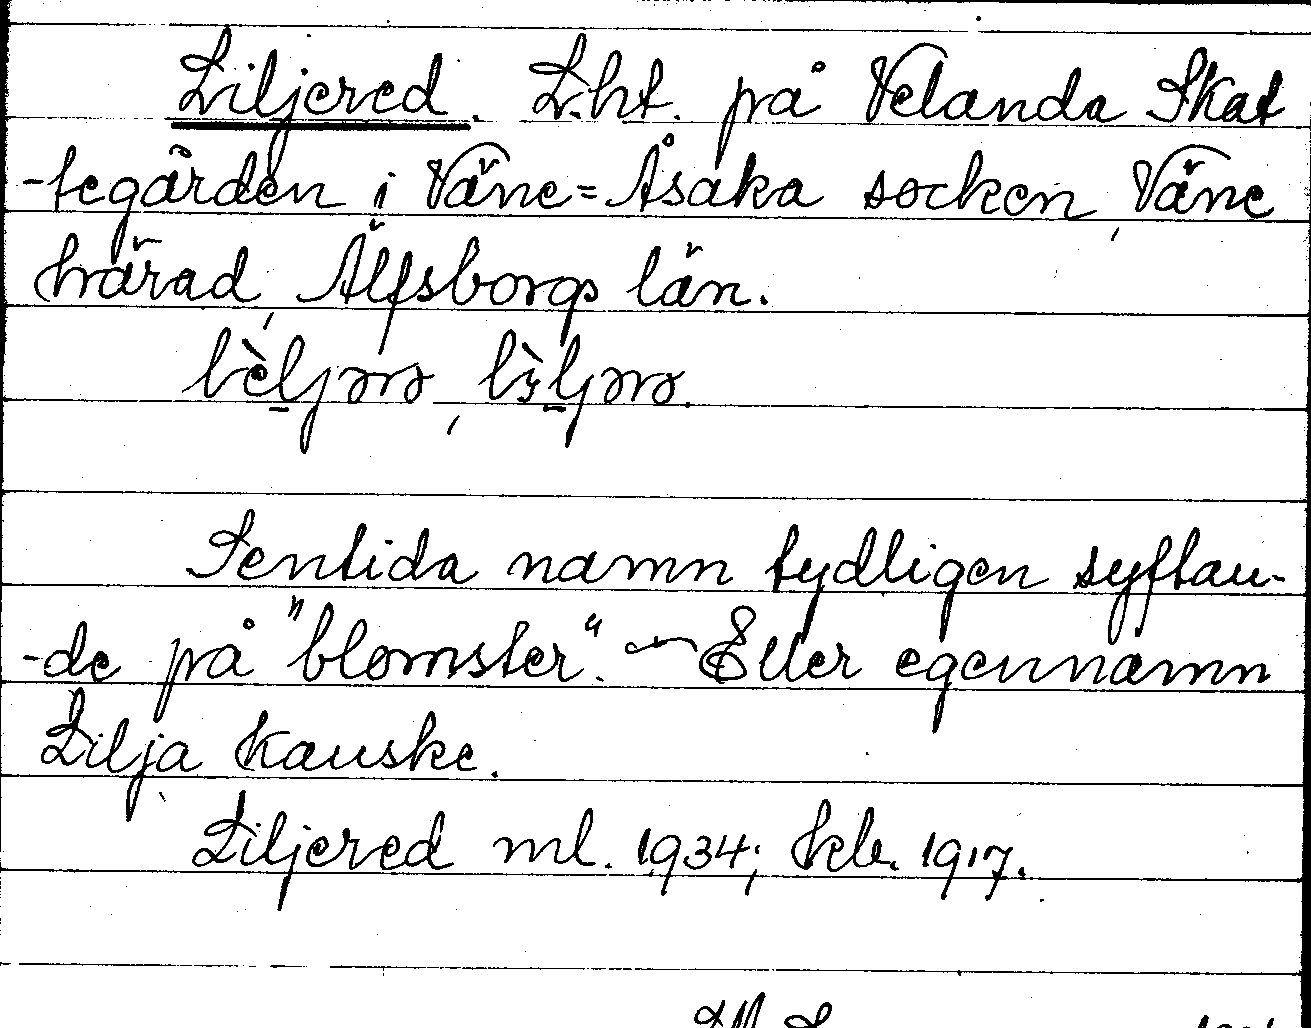 Liljered. L.ht. på Velanda Skat
-tegården i Väne=Åsaka socken, Väne
härad, Älfsborgs län.
Sentida namn tydligen syftan-
-de på "blomster". — Eller egennamn
Lilja kanske.
Liljered ml. 1934; kb. 1917.